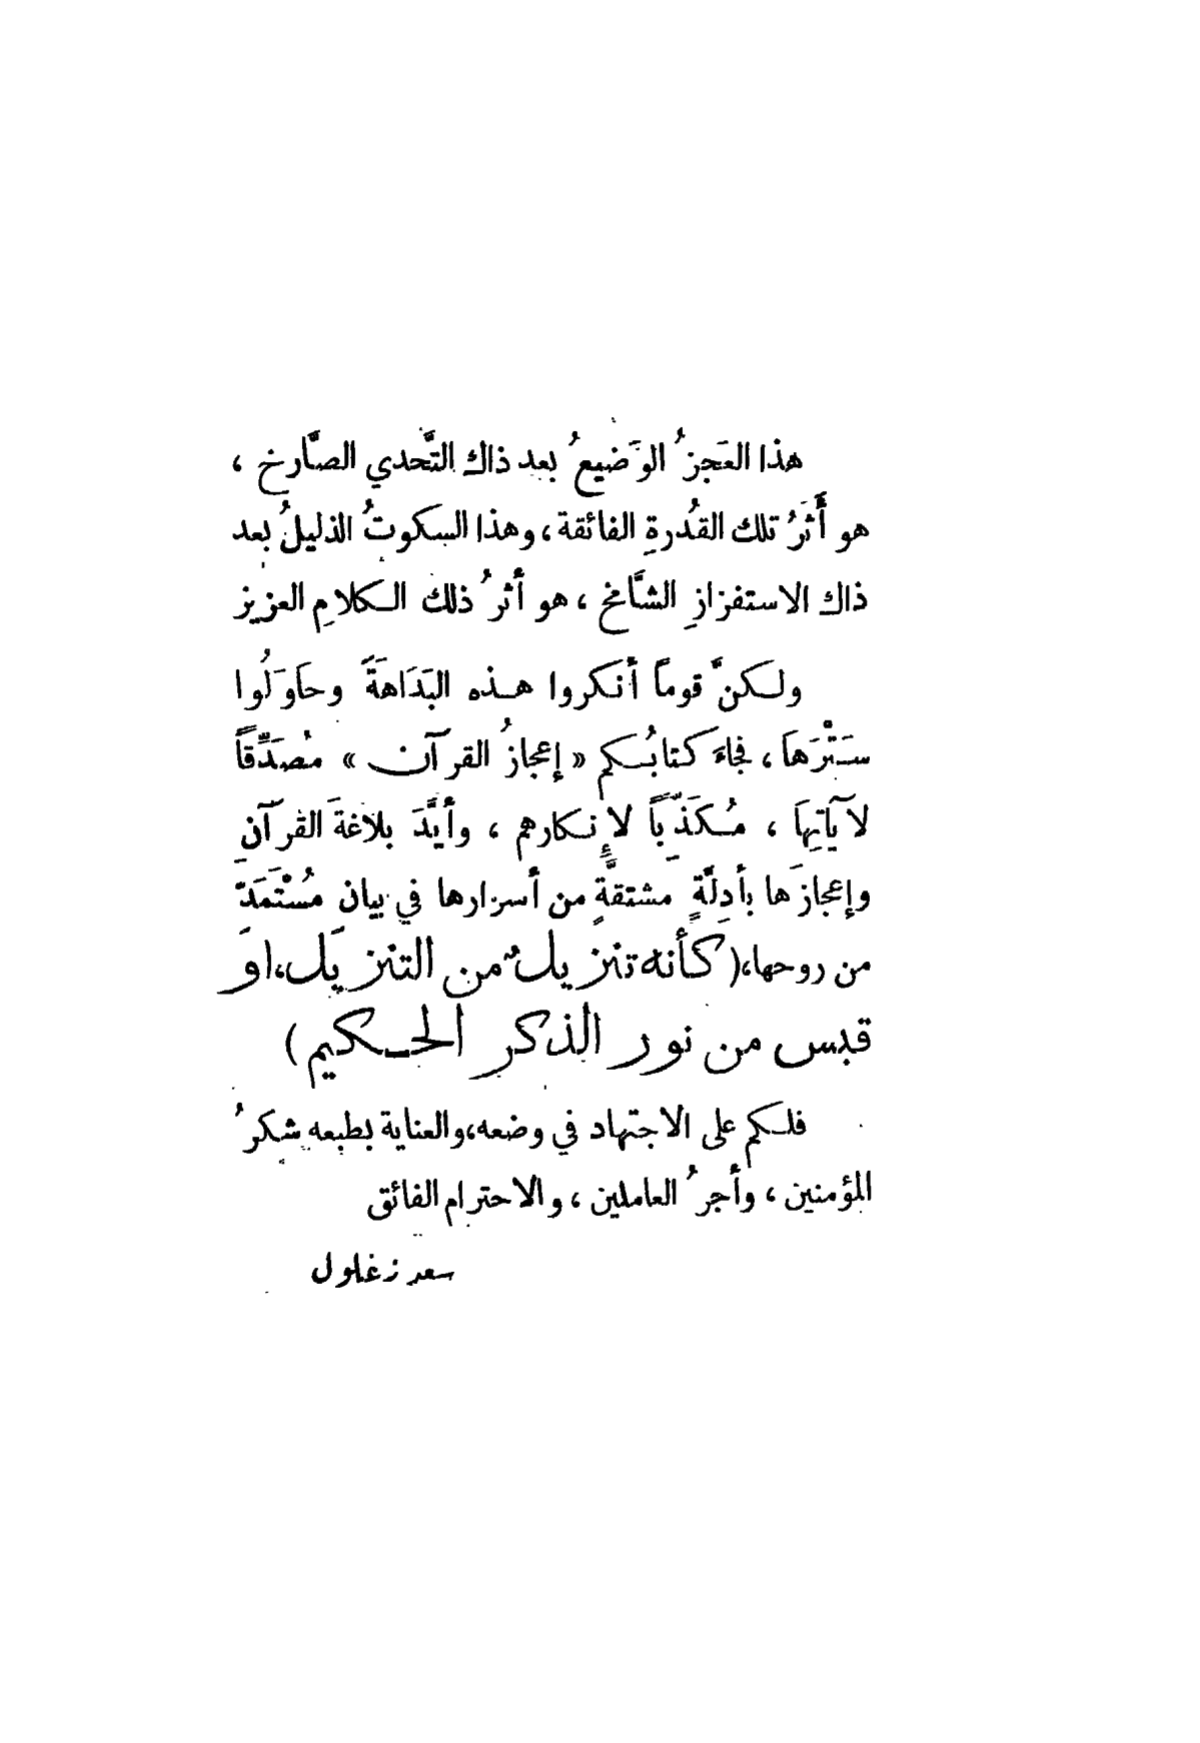 هذا العَجزُ الوَضيعُ بعد ذاك التَّحدي الصَّارخ ،
هو أَثَرُ تلك القُدرةِ الفائقة ، وهذا السكوتُ الذليلُ بعد
ذاك الاستفزازِ الشَّامخ ، هو أثرُ ذلك الكلامِ العزيز
ولكنَّ قوماً أنكروا هذه البَدَاهَةَ وحاوَلُوا
سَتْرَهَا ، فجاءَ كتابُكم « إعجازُ القرآن » مُصَدِّقاً
لآيَاتِهَا ، مُكَذِّبَاً لإنكارهم ، وأيَّدَ بلاغةَ القرآنِ
وإعجازَها بأدِلَّةٍ مشتقةٍ من أسرارها في بيان مُسْتَمَدٍّ
من روحها، (كأنه تنزيلٌ من التنزيل، او
قبس من نور الذكر الحكيم)
فلكم على الاجتهاد في وضعه، والعناية بطبعه شكرُ
المؤمنين ، وأجرُ العاملين ، والاحترام الفائق
سعد زغلول